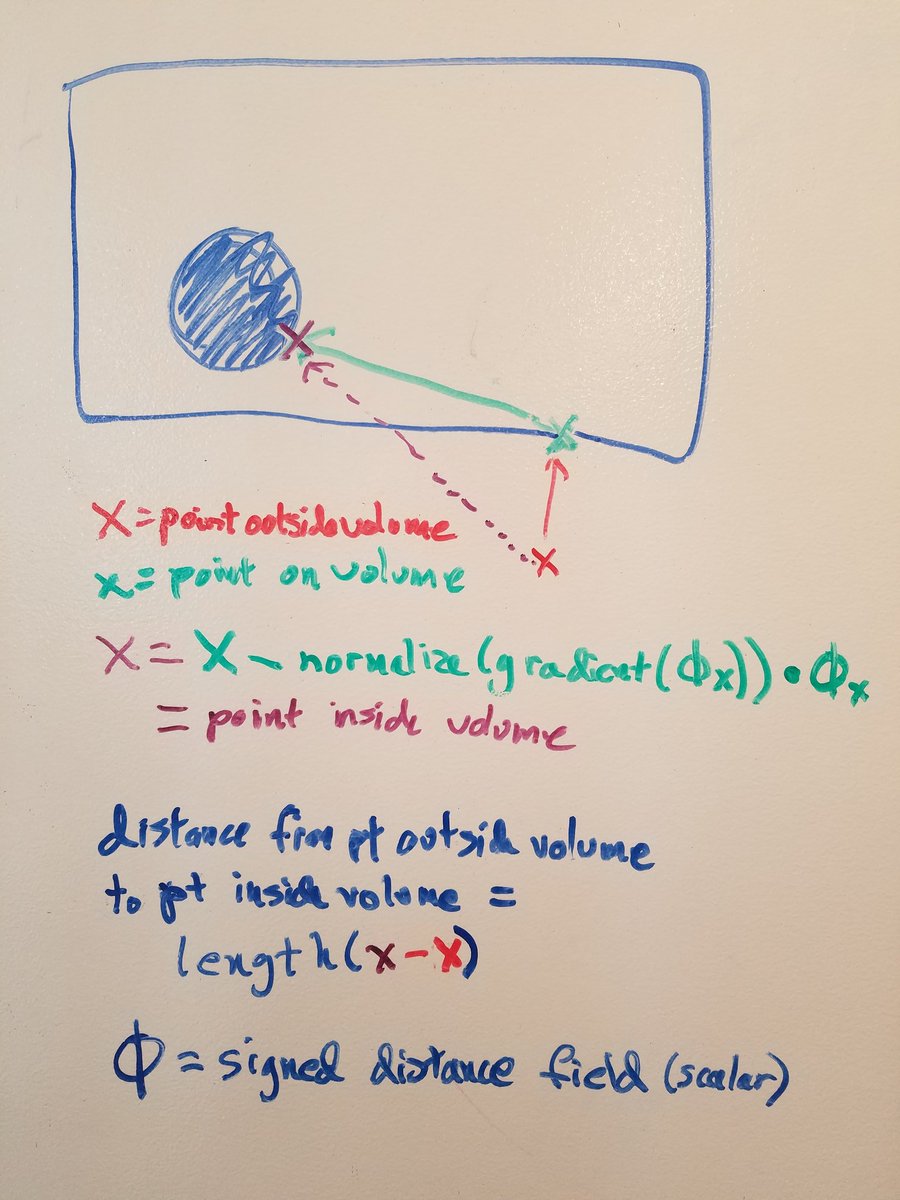 X = point outside volume
x = point on volume
X = X - normalize(gradient(ϕx)) • ϕx
= point inside volume
distance from pt outside volume
to pt inside volume =
length(x-x)
ϕ = signed distance field (scalar)